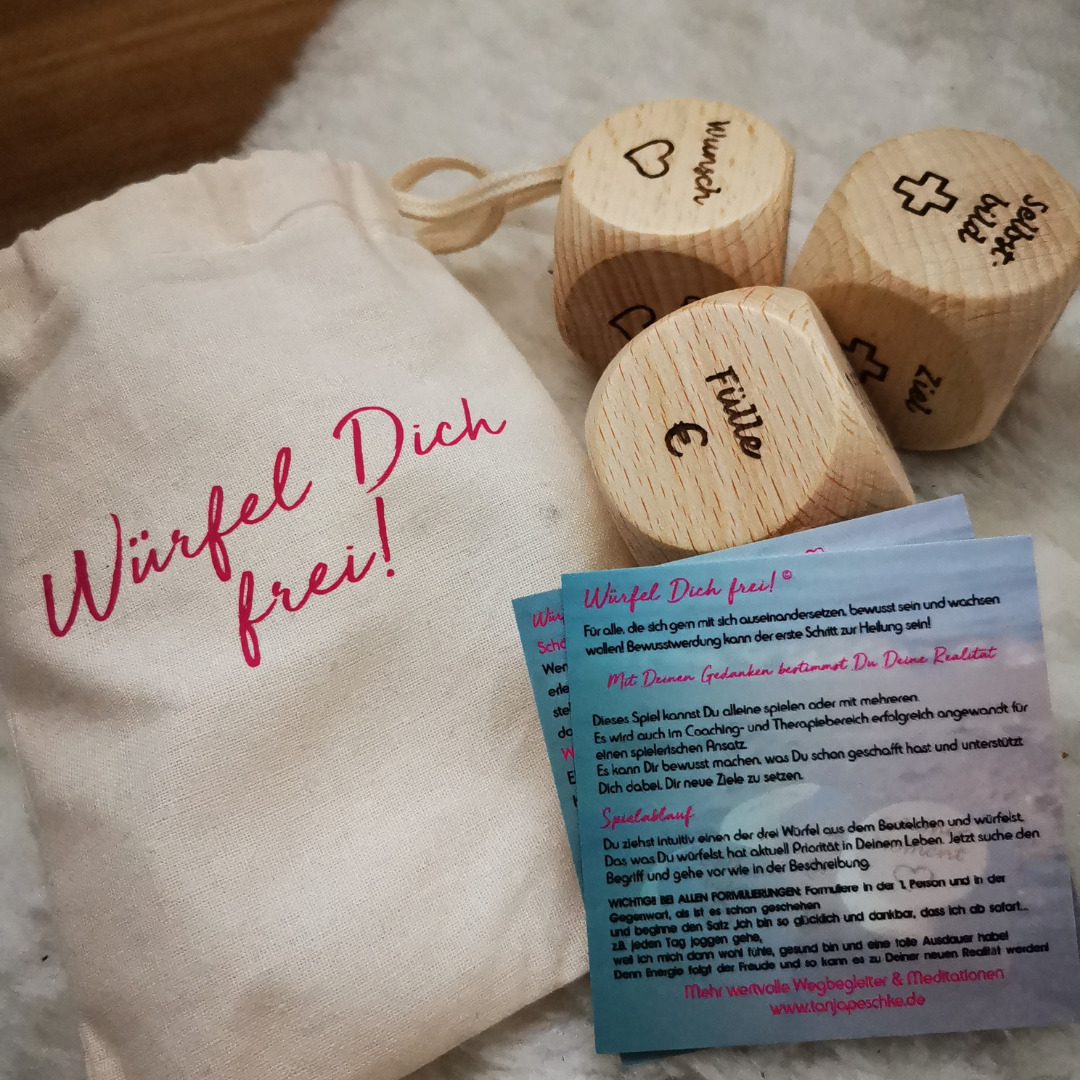 Würfel Dich
frei!
Wunsch
Selbst-
bild
Ziel
Fülle
€
Würfel Dich frei! ©
Für alle, die sich gern mit sich auseinandersetzen, bewusst sein und wachsen
wollen! Bewusstwerdung kann der erste Schritt zur Heilung sein!
Mit Deinen Gedanken bestimmst Du Deine Realität
Dieses Spiel kannst Du alleine spielen oder mit mehreren.
Es wird auch im Coaching- und Therapiebereich erfolgreich angewandt für
einen spielerischen Ansatz.
Es kann Dir bewusst machen, was Du schon geschafft hast und unterstützt
Dich dabei, Dir neue Ziele zu setzen.
Spielablauf
Du ziehst intuitiv einen der drei Würfel aus dem Beutelchen und würfelst.
Das was Du würfelst, hat aktuell Priorität in Deinem Leben. Jetzt suche den
Begriff und gehe vor wie in der Beschreibung.
WICHTIG!! BEI ALLEN FORMULIERUNGEN: Formuliere in der 1. Person und in der
Gegenwart, als ist es schon geschehen
und beginne den Satz „Ich bin so glücklich und dankbar, dass ich ab sofort...
z.B. jeden Tag joggen gehe,
weil ich mich dann wohl fühle, gesund bin und eine tolle Ausdauer habe!
Denn Energie folgt der Freude und so kann es zu Deiner neuen Realität werden!
Mehr wertvolle Wegbegleiter & Meditationen
www.tanjapeschke.de